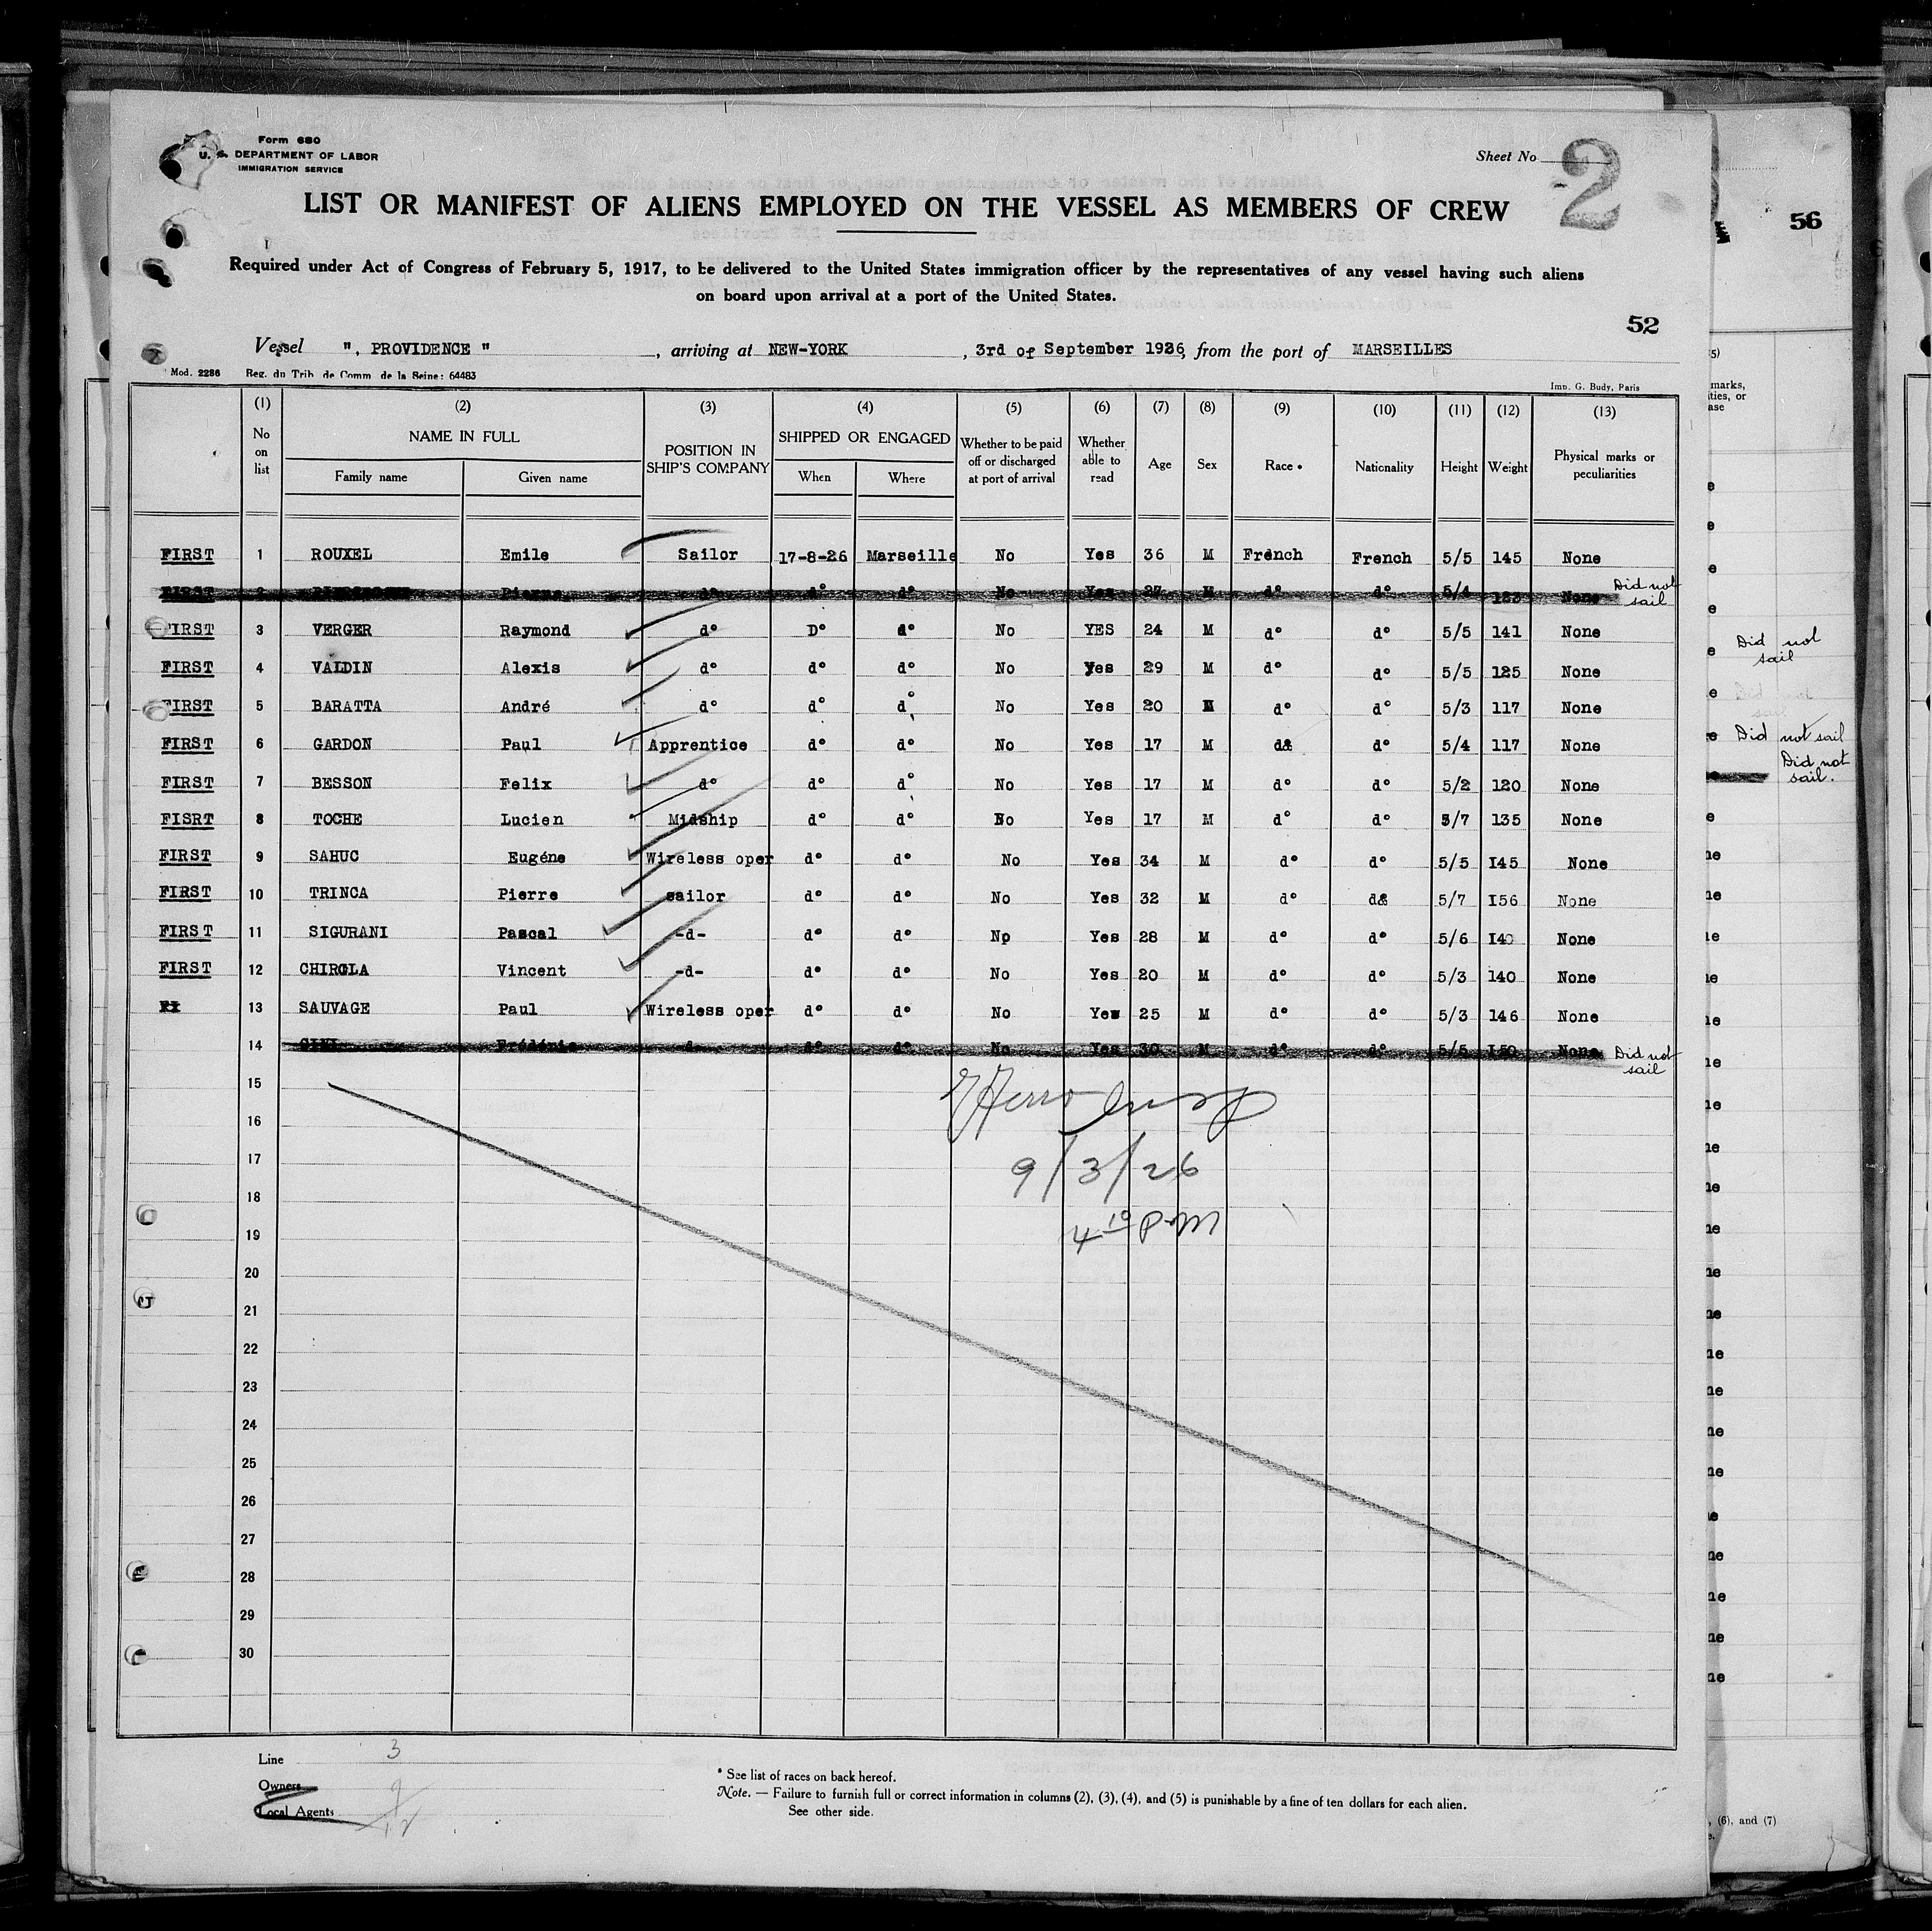 Form 680
U. S. DEPARTMENT OF LABOR
IMMIGRATION SERVICE
Sheet No 2
LIST OR MANIFEST OF ALIENS EMPLOYED ON THE VESSEL AS MEMBERS OF CREW
Required under Act of Congress of February 5, 1917, to be delivered to the United States immigration officer by the representatives of any vessel having such aliens
on board upon arrival at a port of the United States.
52
Vessel ", PROVIDENCE " , arriving at NEW-YORK , 3rd of September 1926, from the port of MARSEILLES
Mod. 2286 Reg. du Trib. de Comm. de la Seine: 64483 Imp. G. Budy, Paris
(1) (2) (3) (4) (5) (6) (7) (8) (9) (10) (11) (12) (13)
No on list NAME IN FULL Family name Given name POSITION IN SHIP'S COMPANY SHIPPED OR ENGAGED When Where Whether to be paid off or discharged at port of arrival Whether able to read Age Sex Race * Nationality Height Weight Physical marks or peculiarities
FIRST 1 ROUXEL Emile Sailor 17-8-26 Marseille No Yes 36 M French French 5/5 145 None
FIRST 2 Pierre d° d° d° No Yes 27 M d° d° 5/4 123 None Did not sail
FIRST 3 VERGER Raymond d° D° d° No YES 24 M d° d° 5/5 141 None
FIRST 4 VALDIN Alexis d° d° d° No Yes 29 M d° d° 5/5 125 None
FIRST 5 BARATTA André d° d° d° No Yes 20 M d° d° 5/3 117 None
FIRST 6 GARDON Paul Apprentice d° d° No Yes 17 M d& d° 5/4 117 None
FIRST 7 BESSON Felix d° d° d° No Yes 17 M d° d° 5/2 120 None
FISRT 8 TOCHE Lucien Midship d° d° No Yes 17 M d° d° 5/7 135 None
FIRST 9 SAHUC Eugéne Wireless oper d° d° No Yes 34 M d° d° 5/5 I45 None
FIRST 10 TRINCA Pierre sailor d° d° No Yes 32 M d° d& 5/7 I56 None
FIRST 11 SIGURANI Pascal -d- d° d° No Yes 28 M d° d° 5/6 I40 None
FIRST 12 CHIROLA Vincent -d- d° d° No Yes 20 M d° d° 5/3 140 None
13 SAUVAGE Paul Wireless oper d° d° No Yes 25 M d° d° 5/3 146 None
14 GINI Frédéric d- d° d° No Yes 30 M d° d° 5/5 I50 None Did not sail
15
16
17
9/3/26
18
19
4 10 PM
20
21
22
23
24
25
26
27
28
29
30
Line 3
Owners
Local Agents
* See list of races on back hereof.
Note. — Failure to furnish full or correct information in columns (2), (3), (4), and (5) is punishable by a fine of ten dollars for each alien.
See other side.
56
marks,
ties, or
ase
Did not
sail
Did not sail
Did not
sail.
, (6), and (7)